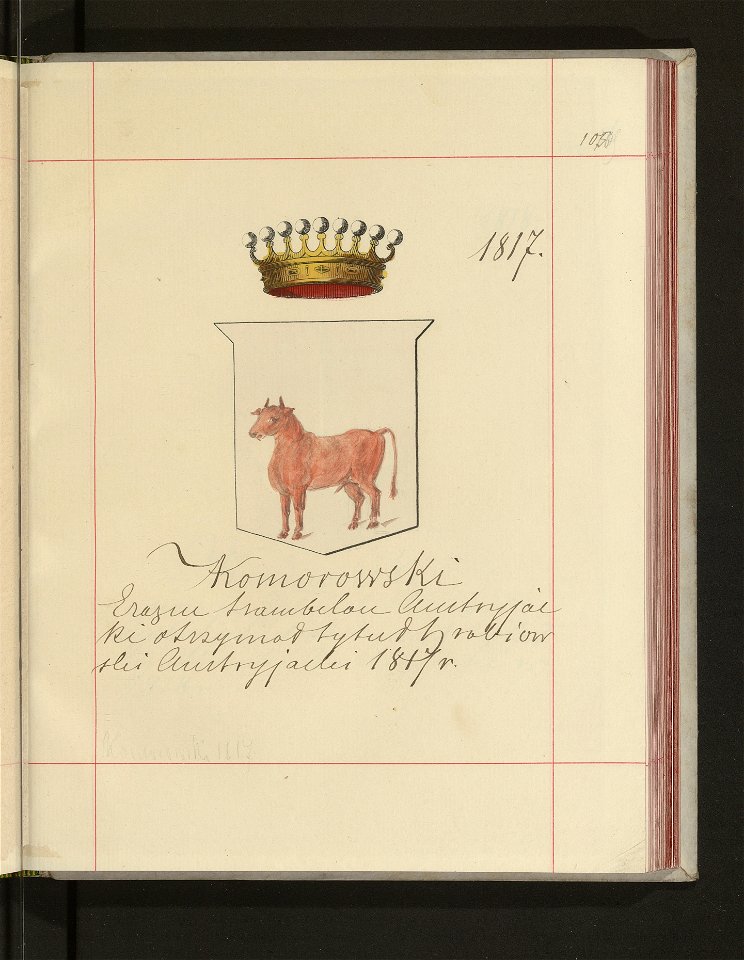 1817.
Komorowski
Erazm szambelan Austryjac
ki otrzymał tytuł hrabiow
ski Austryjacki 1817 r.
Komorowski 1817